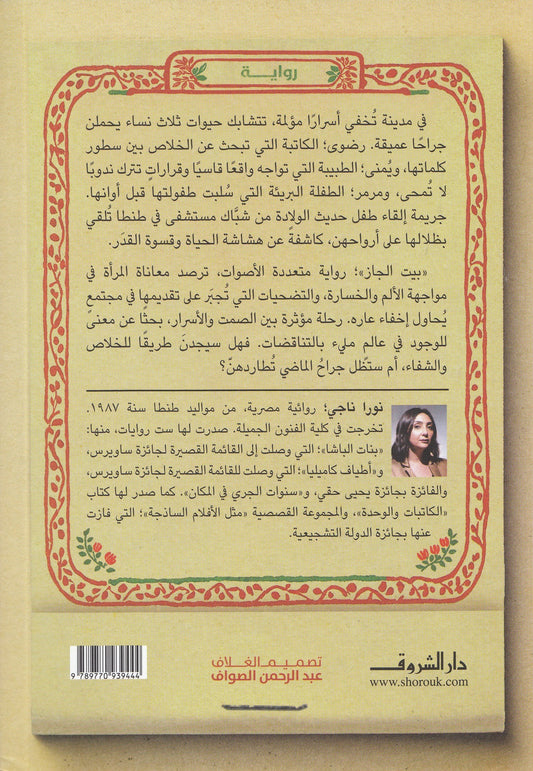 روايـــة
في مدينة تُخفي أسرارًا مؤلمة، تتشابك حيوات ثلاث نساء يحملن
جراحًا عميقة. رضوى؛ الكاتبة التي تبحث عن الخلاص بين سطور
كلماتها، ويُمنى؛ الطبيبة التي تواجه واقعًا قاسيًا وقراراتٍ تترك ندوبًا
لا تُمحى، ومرمر؛ الطفلة البريئة التي سُلبت طفولتها قبل أوانها.
جريمة إلقاء طفل حديث الولادة من شبَّاك مستشفى في طنطا تُلقي
بظلالها على أرواحهن، كاشفةً عن هشاشة الحياة وقسوة القدَر.
«بيت الجاز»؛ رواية متعددة الأصوات، ترصد معاناة المرأة في
مواجهة الألم والخسارة، والتضحيات التي تُجبَر على تقديمها في مجتمعٍ
يُحاول إخفاء عاره. رحلة مؤثرة بين الصمت والأسرار، بحثًا عن معنىً
للوجود في عالم مليء بالتناقضات. فهل سيجدنَ طريقًا للخلاص
والشفاء، أم ستظَل جراحُ الماضي تُطاردهنّ؟
نورا ناجي؛ روائية مصرية، من مواليد طنطا سنة ١٩٨٧.
تخرجت في كلية الفنون الجميلة. صدرت لها ست روايات، منها:
«بنات الباشا»؛ التي وصلت إلى القائمة القصيرة لجائزة ساويرس،
و«أطياف كاميليا»؛ التي وصلت للقائمة القصيرة لجائزة ساويرس،
والفائزة بجائزة يحيى حقي، و«سنوات الجري في المكان». كما صدر لها كتاب
«الكاتبات والوحدة»، والمجموعة القصصية «مثل الأفلام الساذجة»؛ التي فازت
عنها بجائزة الدولة التشجيعية.
دار الشروق
www.shorouk.com
تصميم الغلاف
عبد الرحمن الصواف
9 789770 939444